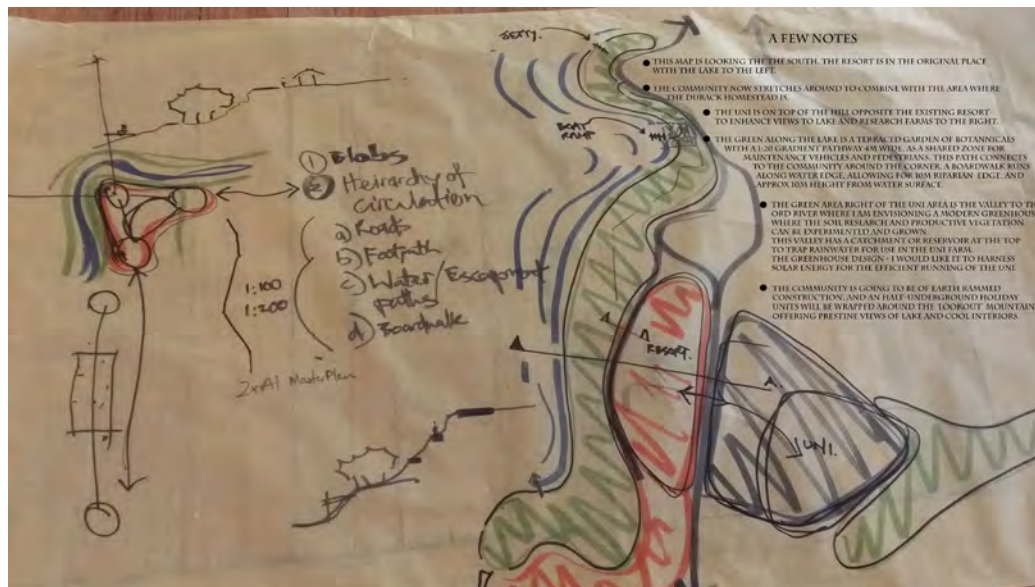 ① Blobs
② Heirarchy of
circulation
a) Roads
b) Footpath
c) Water/Escarpment
paths
d) Boardwalk
1:100
1:200
2xA1 MasterPlan
JETTY.
BOAT
RAMP
RESORT.
UNI.
A FEW NOTES
● THIS MAP IS LOOKING THE THE SOUTH. THE RESORT IS IN THE ORIGINAL PLACE
WITH THE LAKE TO THE LEFT.
● THE COMMUNITY NOW STRETCHES AROUND TO COMBINE WITH THE AREA WHERE
THE DURACK HOMESTEAD IS.
● THE UNI IS ON TOP OF THE HILL OPPOSITE THE EXISTING RESORT
TO ENHANCE VIEWS TO LAKE AND RESEARCH FARMS TO THE RIGHT.
● THE GREEN ALONG THE LAKE IS A TERRACED GARDEN OF BOTANNICALS
WITH A 1:20 GRADIENT PATHWAY 4M WIDE, AS A SHARED ZONE FOR
MAINTENANCE VEHICLES AND PEDESTRIANS. THIS PATH CONNECTS
TO THE COMMUNITY AROUND THE CORNER. A BOARDWALK RUNS
ALONG WATER EDGE, ALLOWING FOR 10M RIPARIAN EDGE, AND
APPROX 10M HEIGHT FROM WATER SURFACE.
● THE GREEN AREA RIGHT OF THE UNI AREA IS THE VALLEY TO TH
ORD RIVER WHERE I AM ENVISIONING A MODERN GREENHOU
WHERE THE SOIL RESEARCH AND PRODUCTIVE VEGETATION
CAN BE EXPERIMENTED AND GROWN.
THIS VALLEY HAS A CATCHMENT OR RESERVOIR AT THE TOP
TO TRAP RAINWATER FOR USE IN THE UNI FARM.
THE GREENHOUSE DESIGN - I WOULD LIKE IT TO HARNESS
SOLAR ENERGY FOR THE EFFICIENT RUNNING OF THE UNI.
● THE COMMUNITY IS GOING TO BE OF EARTH RAMMED
CONSTRUCTION, AND AN HALF-UNDERGROUND HOLIDAY
UNITS WILL BE WRAPPED AROUND THE 'LOOKOUT' MOUNTAIN
OFFERING PRESTINE VIEWS OF LAKE AND COOL INTERIORS.